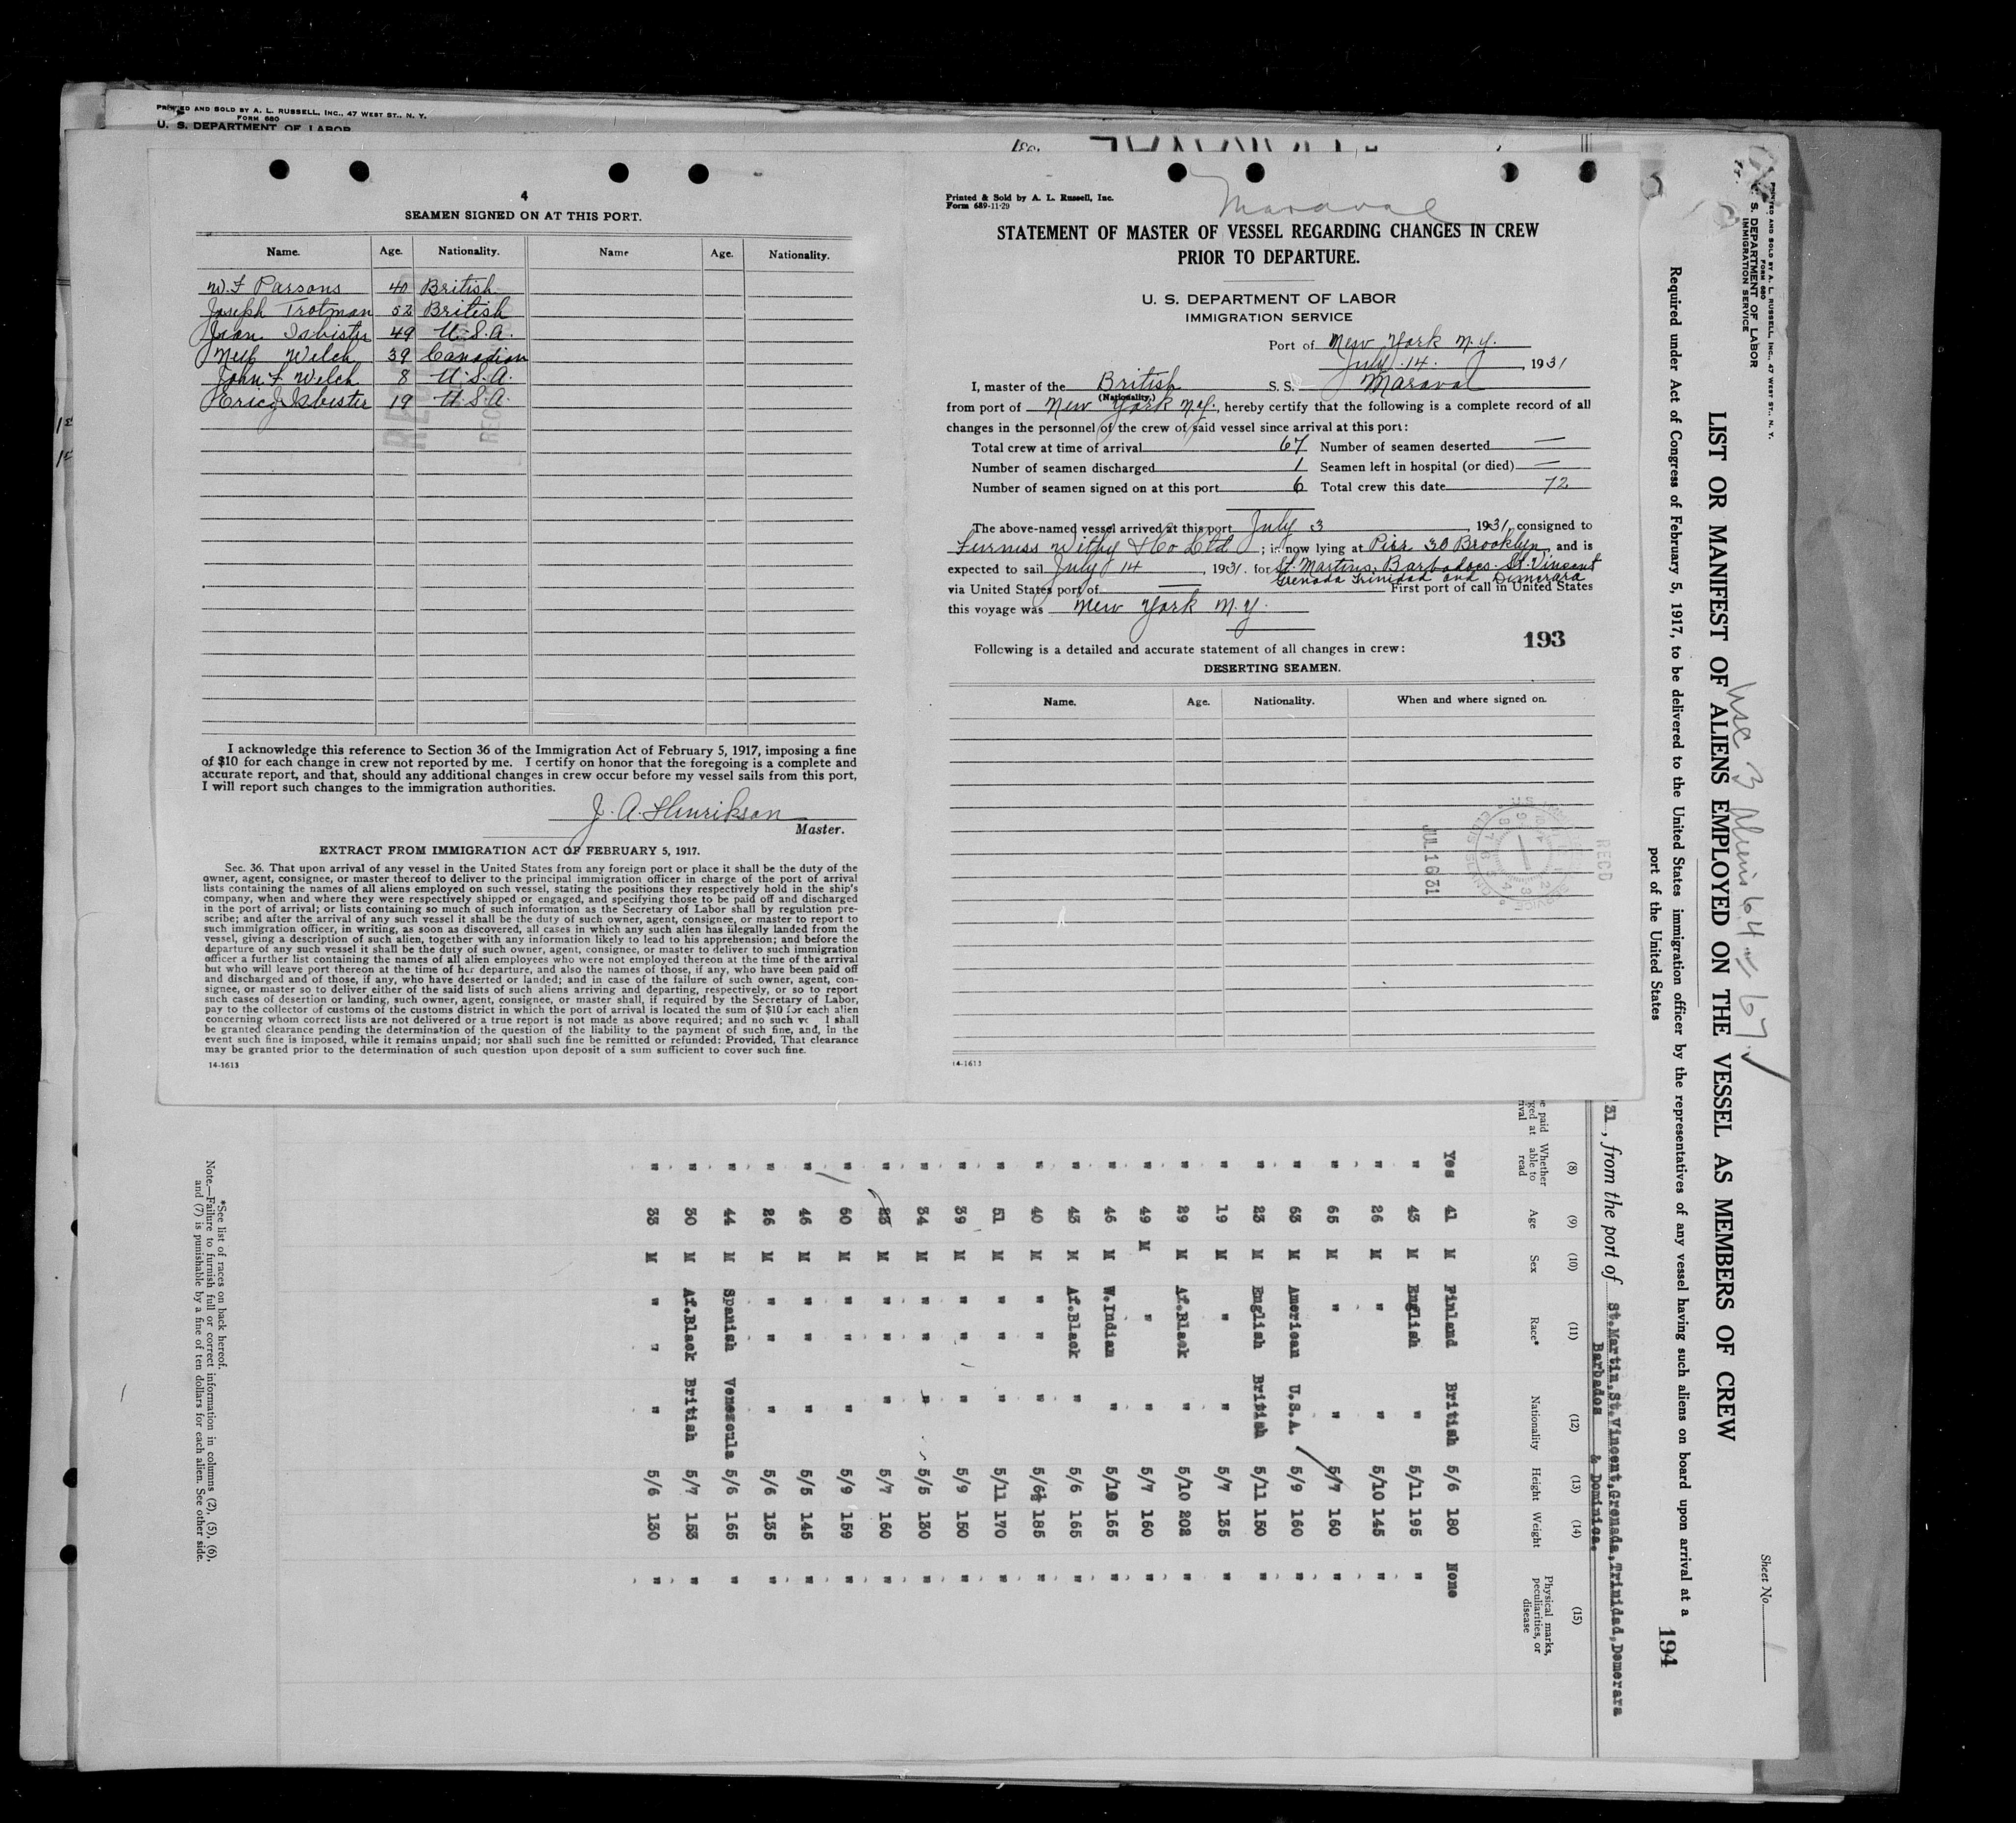 PRINTED AND SOLD BY A. L. RUSSELL, INC., 47 WEST ST., N. Y.
FORM 680
U. S. DEPARTMENT OF LABOR
4
SEAMEN SIGNED ON AT THIS PORT.
Name. Age. Nationality. Name Age. Nationality.
W. F Parsons 40 British
Joseph Trotman 52 British
Jean Isbister 49 U.S.A.
Welch 39 Canadian
John F Welch 8 U.S.A.
Eric J Isbister 19 U.S.A.
I acknowledge this reference to Section 36 of the Immigration Act of February 5, 1917, imposing a fine
of $10 for each change in crew not reported by me. I certify on honor that the foregoing is a complete and
accurate report, and that, should any additional changes in crew occur before my vessel sails from this port,
I will report such changes to the immigration authorities.
J. A. Henrikson
Master.
EXTRACT FROM IMMIGRATION ACT OF FEBRUARY 5, 1917.
Sec. 36. That upon arrival of any vessel in the United States from any foreign port or place it shall be the duty of the
owner, agent, consignee, or master thereof to deliver to the principal immigration officer in charge of the port of arrival
lists containing the names of all aliens employed on such vessel, stating the positions they respectively hold in the ship's
company, when and where they were respectively shipped or engaged, and specifying those to be paid off and discharged
in the port of arrival; or lists containing so much of such information as the Secretary of Labor shall by regulation pre-
scribe; and after the arrival of any such vessel it shall be the duty of such owner, agent, consignee, or master to report to
such immigration officer, in writing, as soon as discovered, all cases in which any such alien has illegally landed from the
vessel, giving a description of such alien, together with any information likely to lead to his apprehension; and before the
departure of any such vessel it shall be the duty of such owner, agent, consignee, or master to deliver to such immigration
officer a further list containing the names of all alien employees who were not employed thereon at the time of the arrival
but who will leave port thereon at the time of her departure, and also the names of those, if any, who have been paid off
and discharged and of those, if any, who have deserted or landed; and in case of the failure of such owner, agent, con-
signee, or master so to deliver either of the said lists of such aliens arriving and departing, respectively, or so to report
such cases of desertion or landing, such owner, agent, consignee, or master shall, if required by the Secretary of Labor,
pay to the collector of customs of the customs district in which the port of arrival is located the sum of $10 for each alien
concerning whom correct lists are not delivered or a true report is not made as above required; and no such ve l shall
be granted clearance pending the determination of the question of the liability to the payment of such fine, and, in the
event such fine is imposed, while it remains unpaid; nor shall such fine be remitted or refunded: Provided, That clearance
may be granted prior to the determination of such question upon deposit of a sum sufficient to cover such fine.
14-1613
Printed & Sold by A. L. Russell, Inc.
Form 689-11-29
Maraval
STATEMENT OF MASTER OF VESSEL REGARDING CHANGES IN CREW
PRIOR TO DEPARTURE.
U. S. DEPARTMENT OF LABOR
IMMIGRATION SERVICE
Port of New York N.Y.
July 14. , 1931
I, master of the British S. S. Maraval
(Nationality.)
from port of New York N.Y., hereby certify that the following is a complete record of all
changes in the personnel of the crew of said vessel since arrival at this port:
Total crew at time of arrival 67 Number of seamen deserted —
Number of seamen discharged 1 Seamen left in hospital (or died) —
Number of seamen signed on at this port 6 Total crew this date 72
The above-named vessel arrived at this port July 3 , 1931, consigned to
Furness Withy & Co Ltd ; is now lying at Pier 30 Brooklyn, and is
expected to sail July 14 , 1931. for St. Martins. Barbadoes. St. Vincent
Grenada Trinidad and Demerara
via United States port of — First port of call in United States
this voyage was New York N.Y.
193
Following is a detailed and accurate statement of all changes in crew:
DESERTING SEAMEN.
Name. Age. Nationality. When and where signed on.
JUL 16 31
RECD
14-1613
PRINTED AND SOLD BY A. L. RUSSELL, INC., 47 WEST ST., N. Y.
FORM 680
U. S. DEPARTMENT OF LABOR
IMMIGRATION SERVICE
Sheet No.
LIST OR MANIFEST OF ALIENS EMPLOYED ON THE VESSEL AS MEMBERS OF CREW
usc 3 Aliens 64 = 67 ✓
Required under Act of Congress of February 5, 1917, to be delivered to the United States immigration officer by the representatives of any vessel having such aliens on board upon arrival at a
port of the United States
194
31 , from the port of St.Martin,St.Vincent,Grenada,Trinidad,Demerara
Barbados & Dominica.
(8) (9) (10) (11) (12) (13) (14) (15)
Whether able to read Age Sex Race* Nationality Height Weight Physical marks, peculiarities, or disease
Yes 41 M Finland British 5/6 180 None
" 43 M English " 5/11 195 "
" 26 M " " 5/10 145 "
" 65 M " " 5/7 160 "
" 63 M American U.S.A. 5/9 160 "
" 23 M English British 5/11 150 "
" 19 M " " 5/7 135 "
" 29 M Af.Black " 5/10 202 "
" 49 M " " 5/7 160 "
" 46 M W.Indian " 5/10 165 "
" 43 M Af.Black " 5/6 165 "
" 40 M " " " 5/6½ 185 "
" 51 M " " " 5/11 170 "
" 39 M " " " 5/9 150 "
" 34 M " " " 5/5 130 "
" 23 M " " " 5/7 160 "
" 60 M " " " 5/9 159 "
" 46 M " " " 5/5 145 "
" 26 M " " " 5/6 135 "
" 44 M Spanish Venezuela 5/6 165 "
" 30 M Af.Black British 5/7 153 "
" 33 M " " " 5/6 130 "
*See list of races on back hereof.
Note.—Failure to furnish full or correct information in columns (2), (5), (6),
and (7) is punishable by a fine of ten dollars for each alien. See other side.